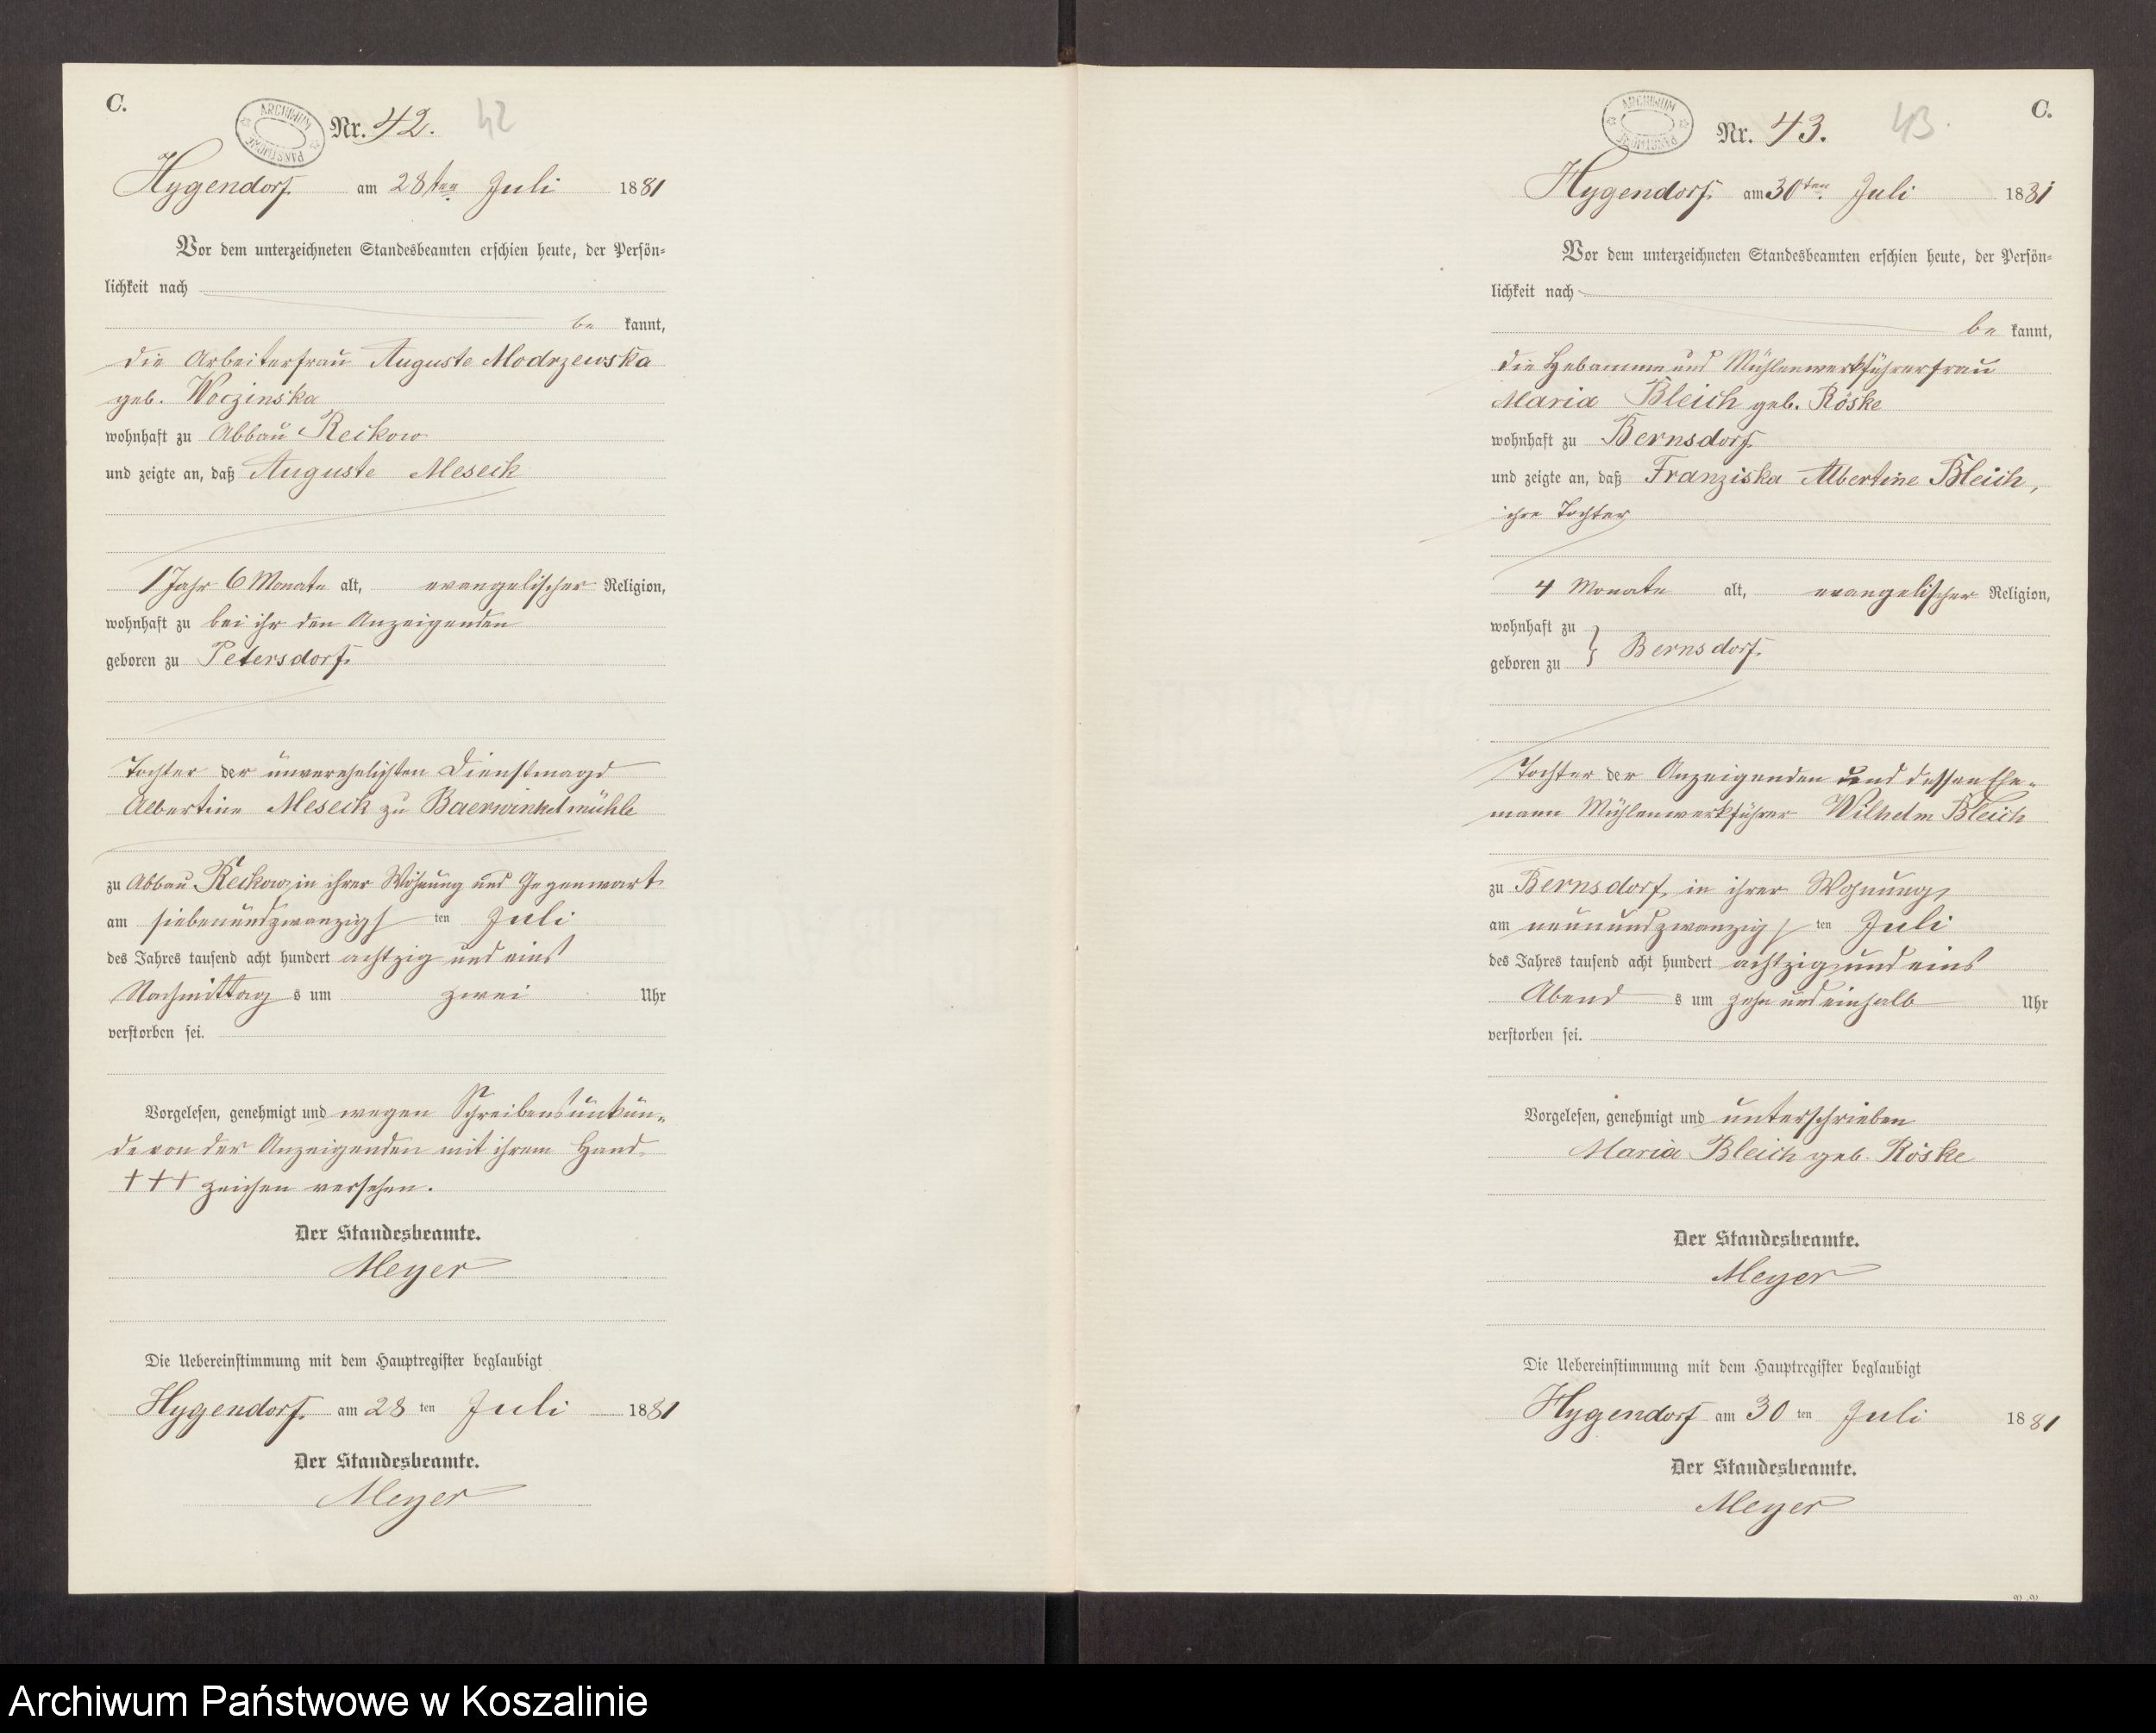 C.
ARCHIWUM PAŃSTWOWE
Nr. 42. 42
Hygendorf. am 28ten Juli 1881
Vor dem unterzeichneten Standesbeamten erschien heute, der Persön-
lichkeit nach
be kannt,
die Arbeiterfrau Auguste Modrzewska
geb. Woczinska
wohnhaft zu Abbau Reckow
und zeigte an, daß Auguste Meseck
1 Jahr 6 Monate alt, evangelischer Religion,
wohnhaft zu bei ihr den Anzeigenden
geboren zu Petersdorf.
Tochter der unverehelichten Dienstmagd
Albertine Meseck zu Baerwinkelmühle
zu Abbau Reckow, in ihrer Wohnung und Gegenwart
am siebenundzwanzigs ten Juli
des Jahres tausend acht hundert achtzig und eins
Nachmittag s um zwei Uhr
verstorben sei.
Vorgelesen, genehmigt und wegen Schreibensunkun-
de von der Anzeigenden mit ihrem Hand-
+++ zeichen versehen.
Der Standesbeamte.
Meyer
Die Uebereinstimmung mit dem Hauptregister beglaubigt
Hygendorf. am 28 ten Juli 1881
Der Standesbeamte.
Meyer
C.
ARCHIWUM PAŃSTWOWE
Nr. 43. 43
Hygendorf. am 30ten Juli 1881
Vor dem unterzeichneten Standesbeamten erschien heute, der Persön-
lichkeit nach
be kannt,
die Hebamme und Mühlenwerkführerfrau
Maria Bleich geb. Röske
wohnhaft zu Bernsdorf.
und zeigte an, daß Franziska Albertine Bleich,
ihre Tochter
4 Monate alt, evangelischer Religion,
wohnhaft zu
geboren zu } Bernsdorf.
Tochter der Anzeigenden und dessen Ehe-
mann Mühlenwerkführer Wilhelm Bleich
zu Bernsdorf, in ihrer Wohnung,
am neunundzwanzigs ten Juli
des Jahres tausend acht hundert achtzig und eins
Abend s um zehn und einhalb Uhr
verstorben sei.
Vorgelesen, genehmigt und unterschrieben
Maria Bleich geb. Röske
Der Standesbeamte.
Meyer
Die Uebereinstimmung mit dem Hauptregister beglaubigt
Hygendorf am 30 ten Juli 1881
Der Standesbeamte.
Meyer
Archiwum Państwowe w Koszalinie